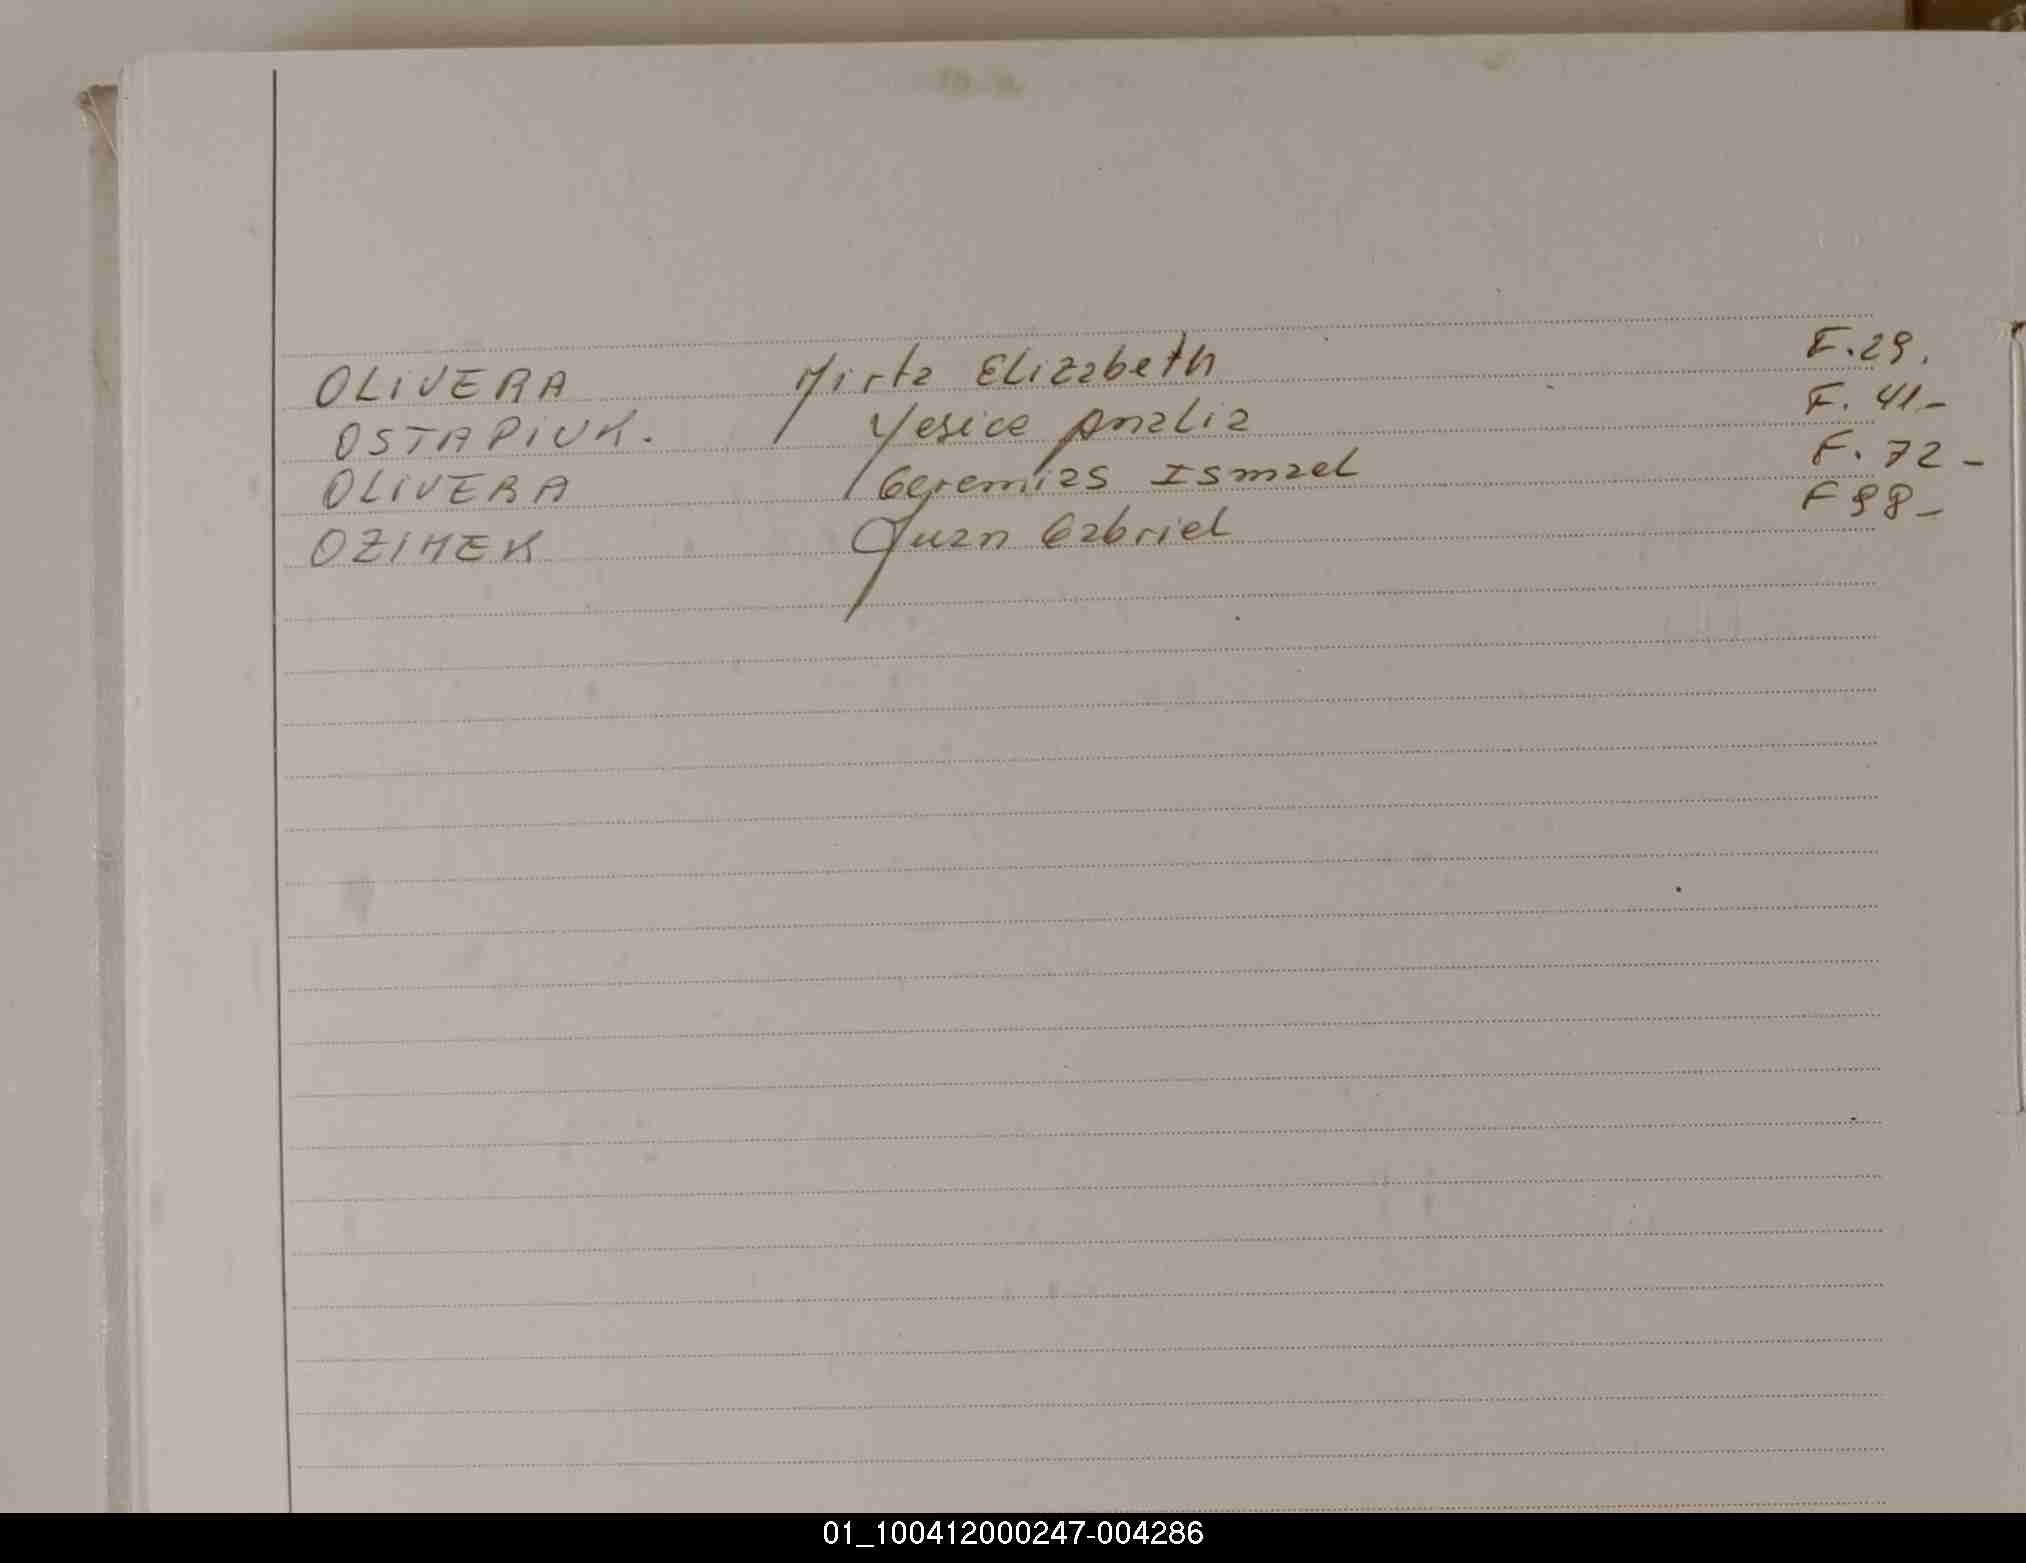 OLIVERA Mirta Elizabeth F.29.
OSTAPIUK. Yesica Analia F. 41-
OLIVERA Geremias Ismael F. 72-
OZIMEK Juan Gabriel F 98-
01_100412000247-004286